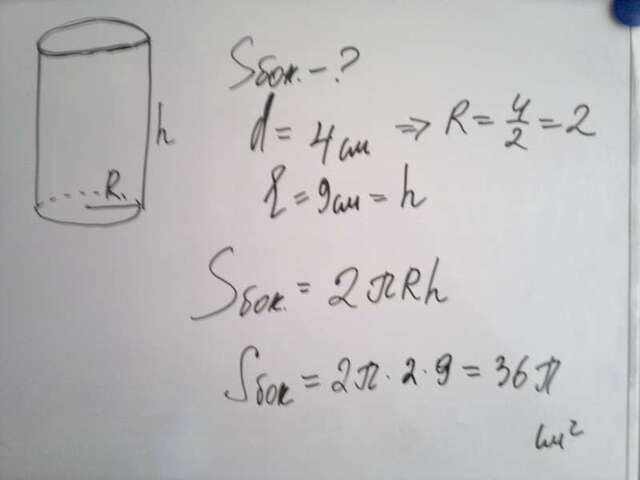 h
R
Sбок. - ?
d = 4 см ⇒ R = 4/2 = 2
l = 9 см = h
Sбок. = 2πRh
Sбок = 2π · 2 · 9 = 36π
см²